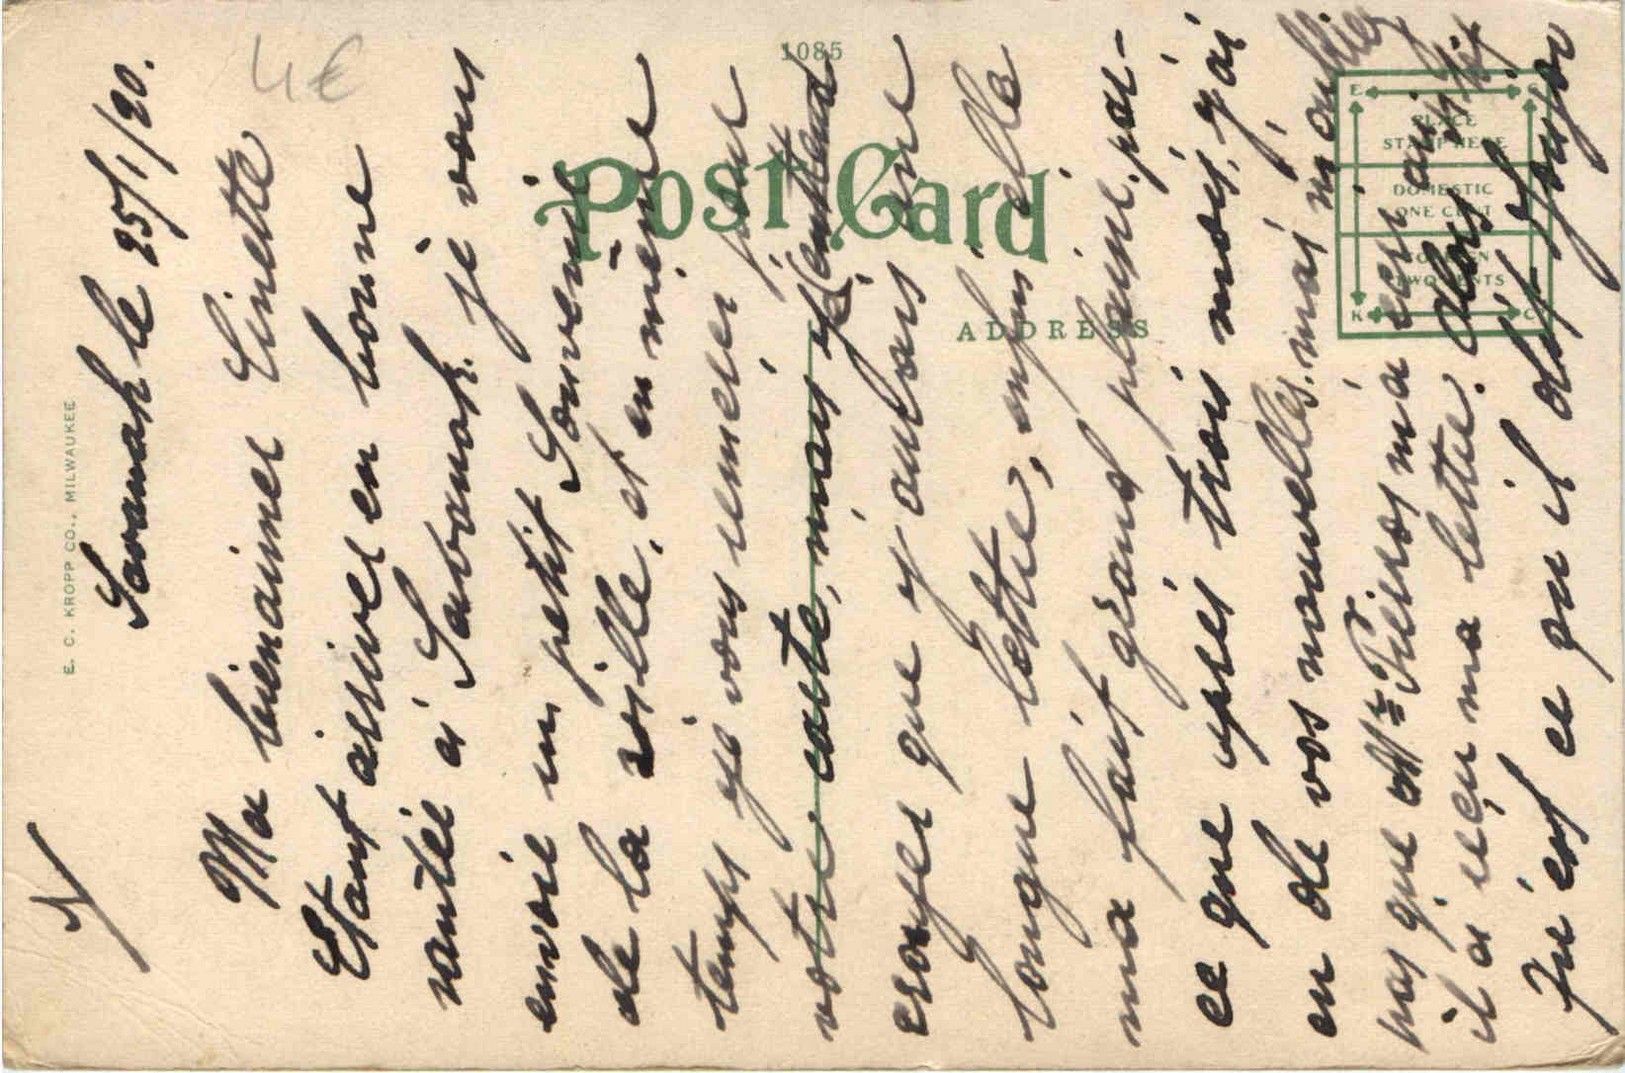 1085
Post Card
ADDRESS
PLACE
STAMP HERE
DOMESTIC
ONE CENT
FOREIGN
TWO CENTS
E. C. KROPP CO., MILWAUKEE
4€
Savanah le 25/1/20.
Ma bienaimer Linette
Etant arriver en bonne
santée a Savanah. je vous
envoie un petit Souvenir
de la ville, et en même
temps je vous remerci pour
votre carte, mais j'attend
esayer que j'aurais une
longue lettre, enfin elle
ma fait grand plaisir, par-
ce que apres trois mois, j'ai
en de vos nouvelles, mais
pas que Mr ma
il a reçu ma lettre. Alors
Qu'est ce qu'il dit